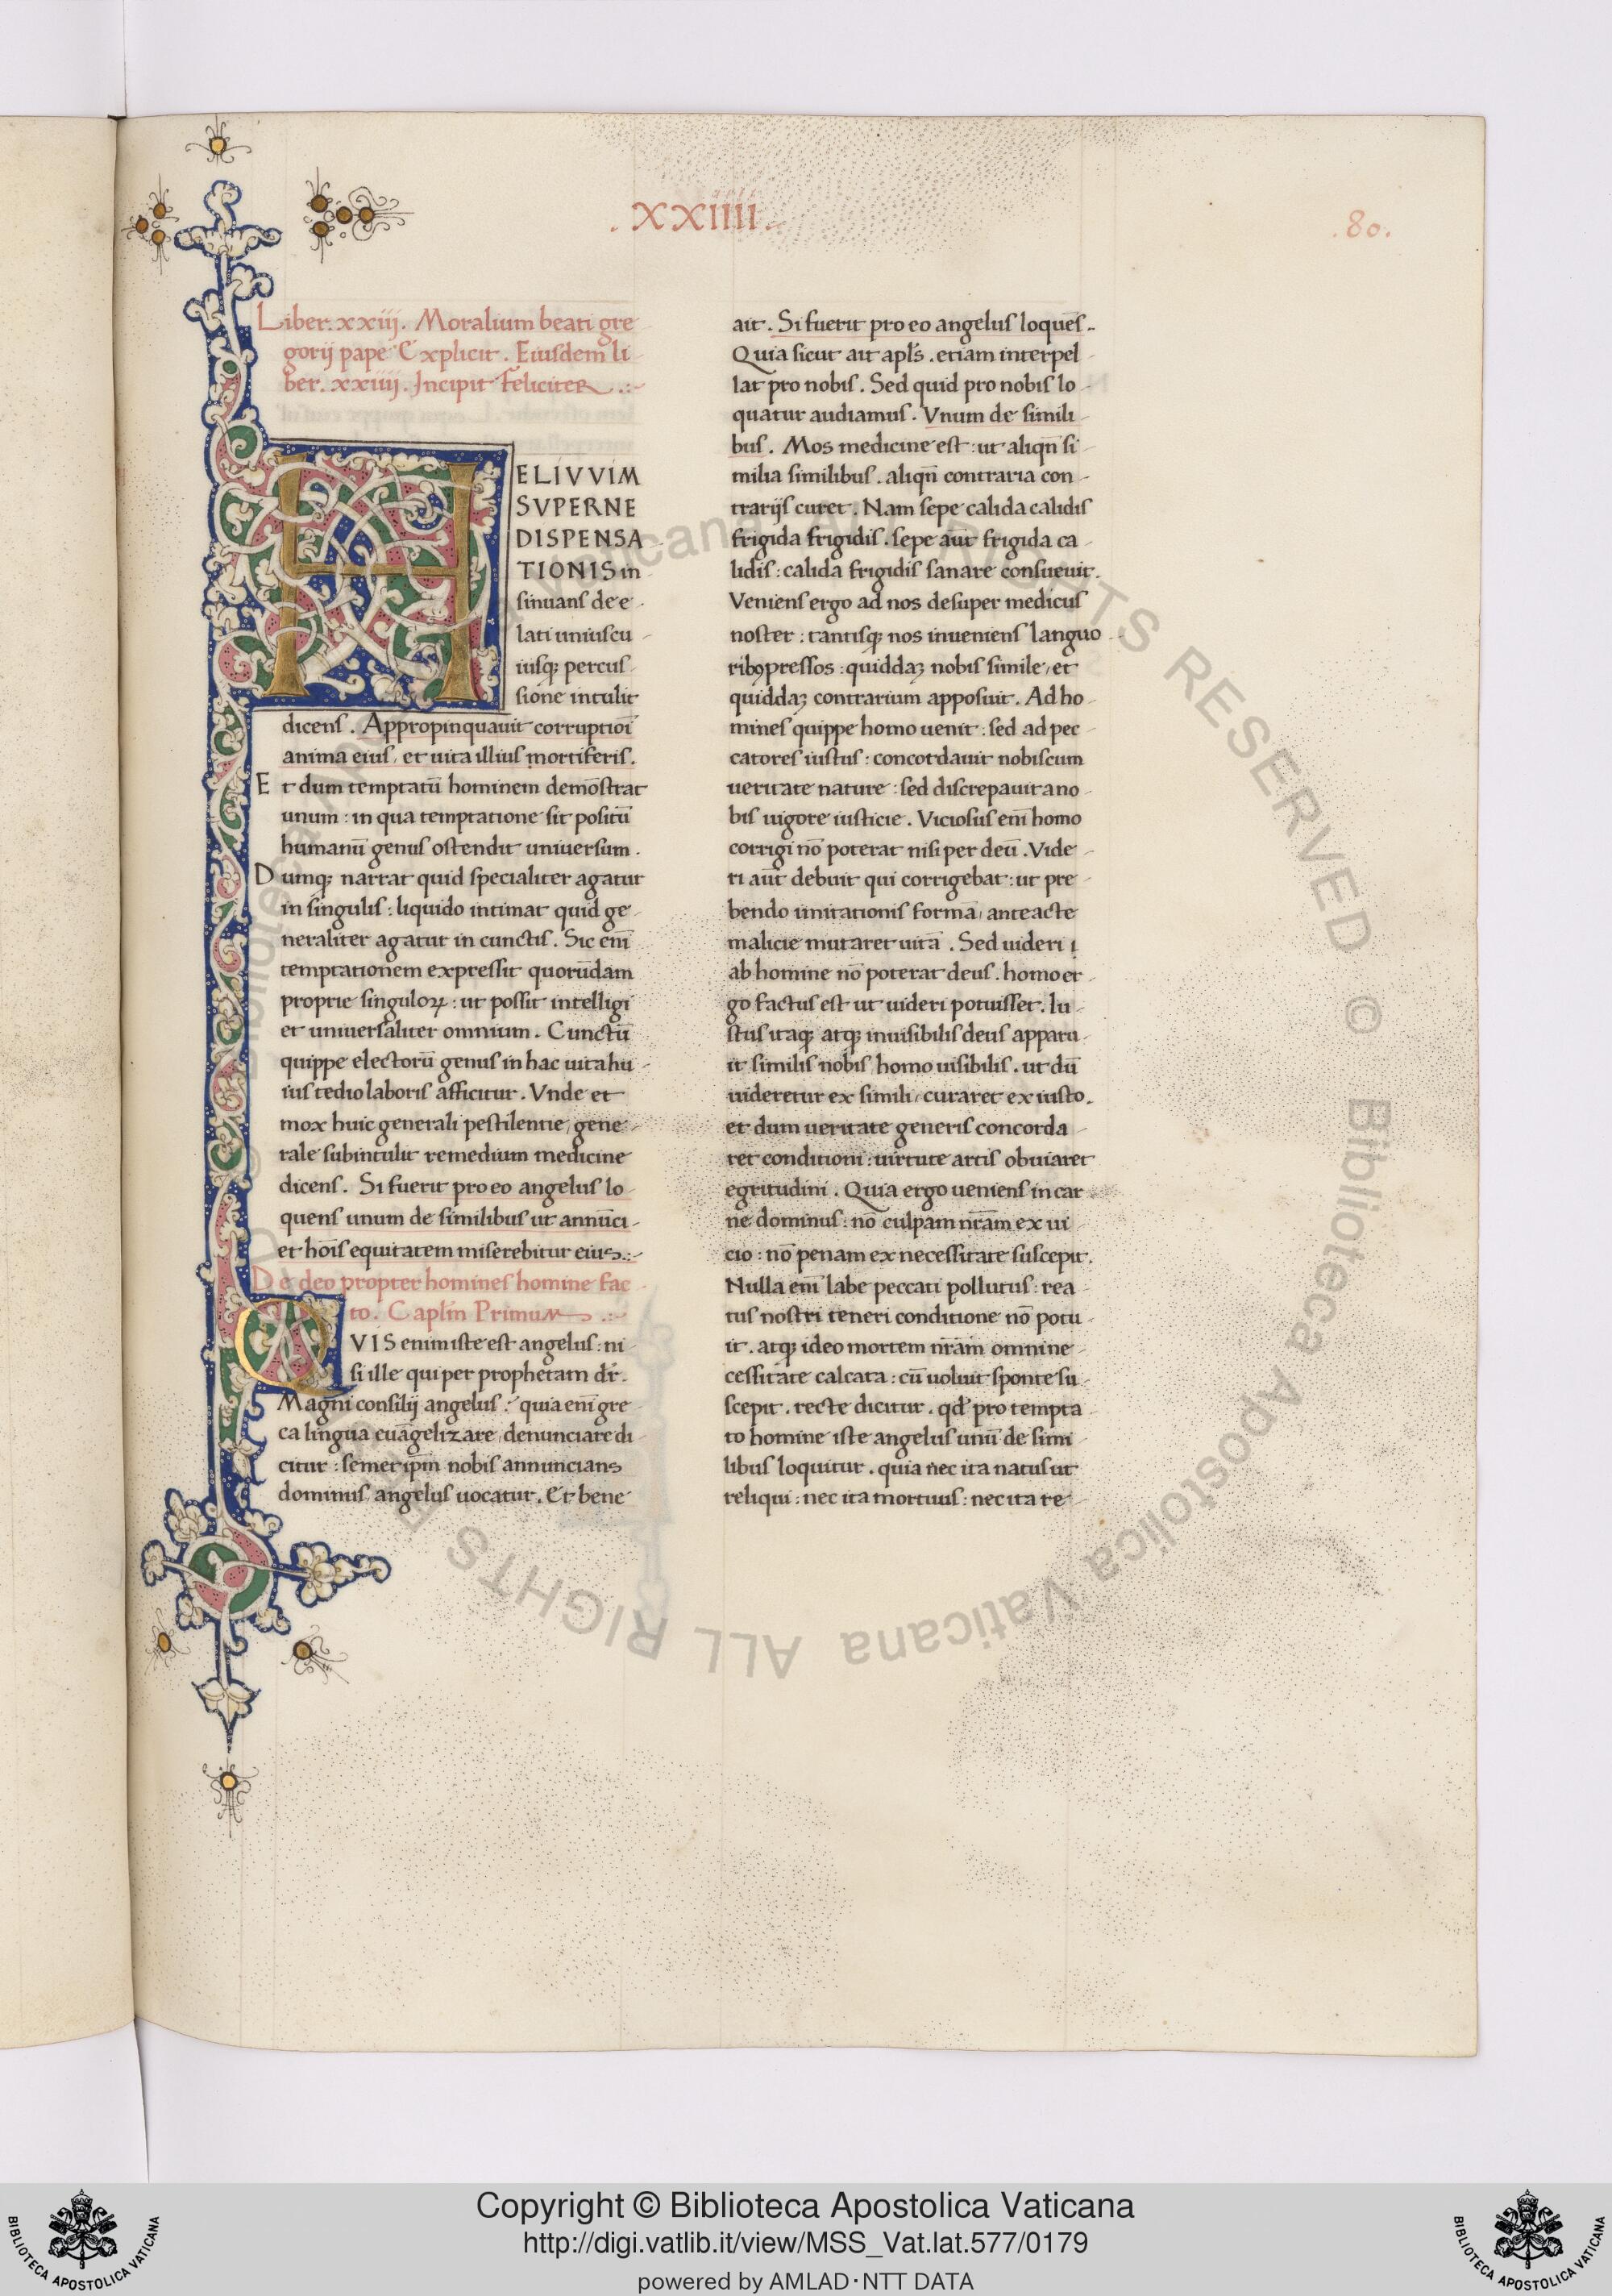 .XXIIII.
.80.
Liber. xxiij. Moralium beati gre
gorij pape Explicit. Eiusdem li
ber. xxiiij. Incipit Feliciter .:-
HELIVVIM
SVPERNE
DISPENSA
TIONIS in
sinuans de e
lati uniuscu
iusq; percus
sione intulit
dicens. Appropinquauit corruptiōi
anima eius, et uita illius mortiferis.
Et dum temptatū hominem demōstrat
unum: in qua temptatione sit positū
humanū genus ostendit uniuersum.
Dumq; narrat quid specialiter agatur
in singulis: liquido intimat quid ge
neraliter agatur in cunctis. Sic enī
temptationem expressit quorūdam
proprie singuloꝝ: ut possit intelligi
et uniuersaliter omnium. Cunctū
quippe electorū genus in hac uita hu
ius tedio laboris afficitur. Vnde et
mox huic generali pestilentie, gene
rale subintulit remedium medicine
dicens. Si fuerit pro eo angelus lo
quens unum de similibus ut annūci
et hoīs equitatem miserebitur eius.:-
De deo propter homines homine fac
to. Caplm̄ Primum .:-
QVIS enim iste est angelus: ni
si ille qui per prophetam dr̄.
Magni consilij angelus: quia enī gre
ca lingua euāgelizare, denunciare di
citur: semet ip̄m nobis annuncians
dominus, angelus uocatur. Et bene
ait. Si fuerit pro eo angelus loquēs.
Quia sicut ait apl̄s. etiam interpel
lat pro nobis. Sed quid pro nobis lo
quatur audiamus. Vnum de simili
bus. Mos medicine est: ut aliqn̄ si
milia similibus. aliqn̄ contraria con
trarijs curet. Nam sepe calida calidis
frigida frigidis. sepe aūt frigida ca
lidis: calida frigidis sanare consueuit.
Veniens ergo ad nos desuper medicus
noster: tantisq; nos inueniens languo
ribꝫ pressos: quiddaꝫ nobis simile, et
quiddaꝫ contrarium apposuit. Ad ho
mines quippe homo uenit: sed ad pec
catores iustus: concordauit nobiscum
ueritate nature: sed discrepauit a no
bis uigore iusticie. Viciosus enī homo
corrigi nō poterat nisi per deū. Vide
ri aūt debuit qui corrigebat: ut pre
bendo imitationis formā, anteacte
malicie mutaret uitā. Sed uideri
ab homine nō poterat deus. homo er
go factus est ut uideri potuisset. Iu
stus itaq; atq; inuisibilis deus apparu
it similis nobis homo uisibilis. ut dū
uideretur ex simili, curaret ex iusto.
et dum ueritate generis concorda
ret conditioni: uirtute artis obuiaret
egritudini. Quia ergo ueniens in car
ne dominus: nō culpam nr̄am ex ui
cio: nō penam ex necessitate suscepit.
Nulla enī labe peccati pollutus: rea
tus nostri teneri conditione nō potu
it. atq; ideo mortem nr̄am omni ne
cessitate calcata: cū uoluit sponte su
scepit. recte dicitur. qd̄ pro tempta
to homine iste angelus unū de simi
libus loquitur. quia nec ita natus ut
reliqui: nec ita mortuus: nec ita re
© Biblioteca Apostolica Vaticana ALL RIGHTS RESERVED © Biblioteca Apostolica Vaticana ALL RIGHTS RESERVED
Copyright © Biblioteca Apostolica Vaticana
http://digi.vatlib.it/view/MSS_Vat.lat.577/0179
powered by AMLAD·NTT DATA
BIBLIOTECA APOSTOLICA VATICANA
BIBLIOTECA APOSTOLICA VATICANA